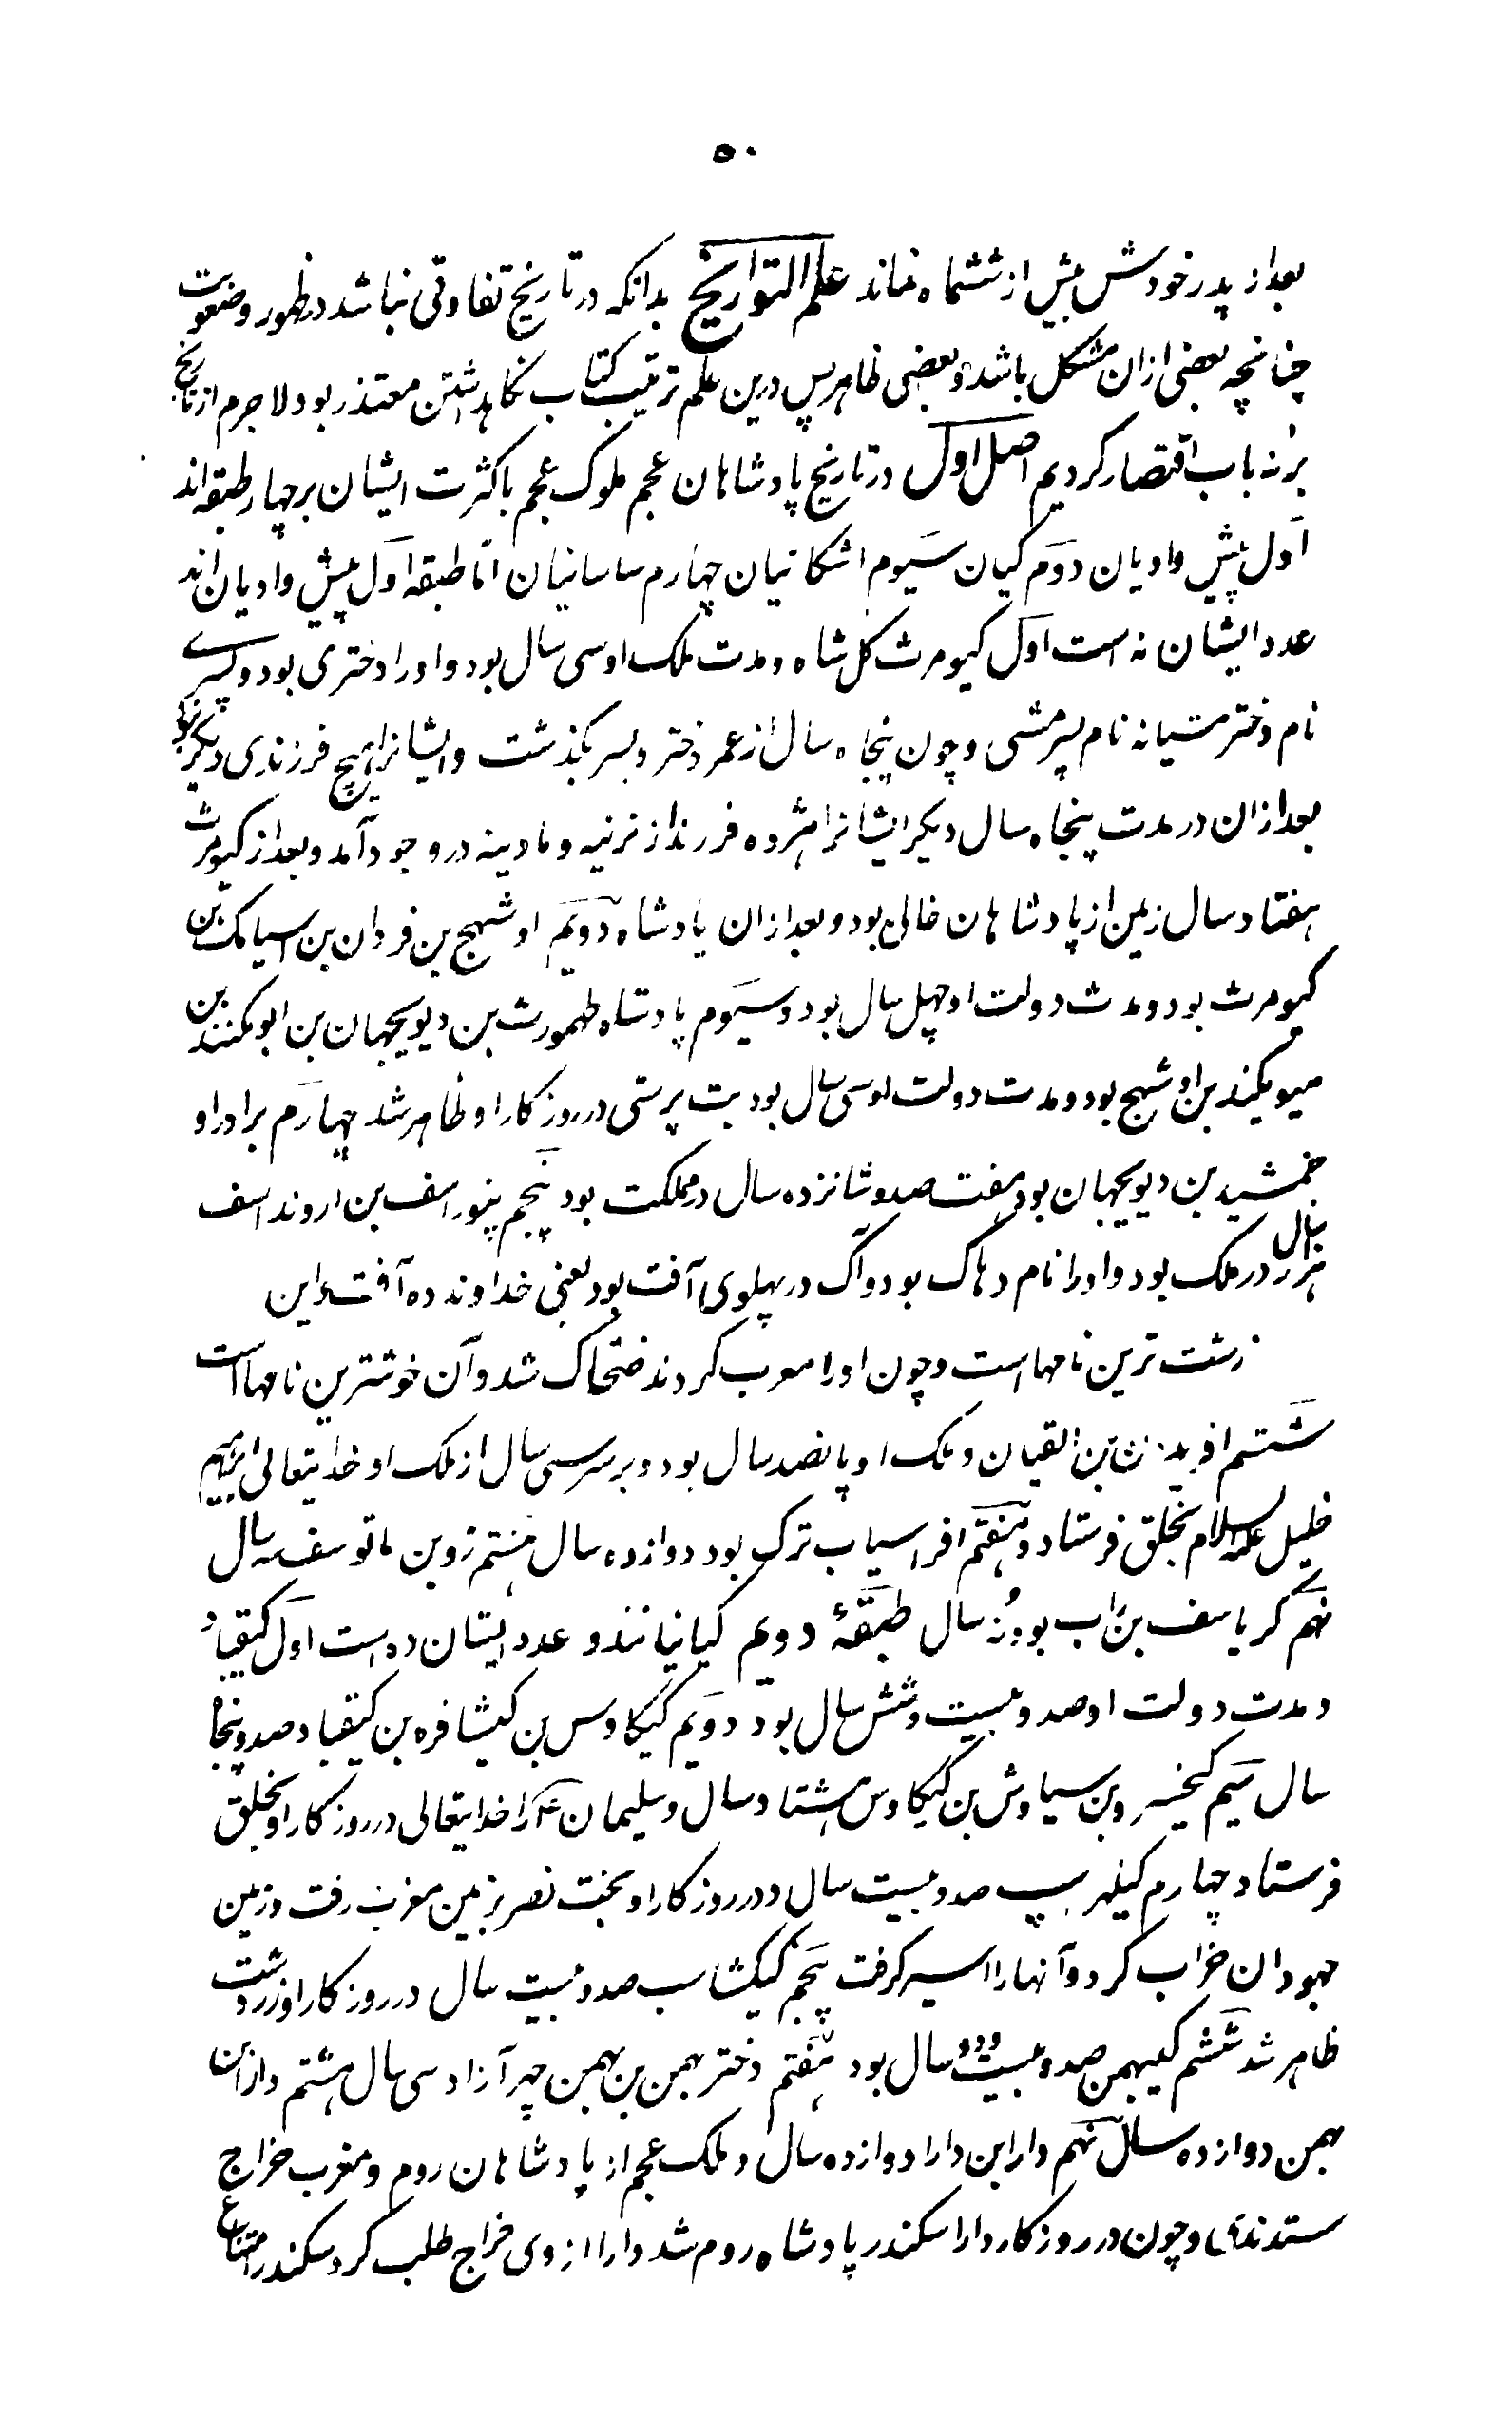 ۵۰
بعد از پدر خودش بیش از ششماه نماند علم التواریخ بدانکه در تاریخ تفاوتی نباشد در ظهور و صعوبت
چنانچه بعضی ازان مشکل باشد و بعضی ظاهر پس درین علم ترتیب کتاب نگاهداشتن معتذر بود لاجرم از تاریخ
بر نه باب اقتصار کردیم اصل اول در تاریخ پادشاهان عجم ملوک عجم باکثرت ایشان بر چهار طبقه اند
اول پیش دادیان دوم کیان سیوم اشکانیان چهارم ساسانیان اما طبقه اول پیش دادیان اند
عدد ایشان نه است اول کیومرث کل شاه و مدت ملک او سی سال بود و او را دختری بود و پسرے
نام دختر مشیانه نام پسر مشی و چون پنجاه سال از عمر دختر و پسر بکذشت و ایشانرا هیچ فرزندی دیکر نبود
بعد ازان در مدت پنجاه سال دیکر ایشانرا هژده فرزند از نرینه و مادینه در وجود آمد و بعد از کیومرث
هفتاد سال زمین از پادشاهان خالی بود و بعد ازان پادشاه دویم اوشهج بن فردان بن اسیامک بن
کیومرث بود و مدت دولت او چهل سال بود و سیوم پادشاه طهمورث بن دیویجهان بن ابومکنند بن
میویکند بن اوشهج بود و مدت دولت او سی سال بود بت پرستی در روزکار او ظاهر شد چهارم برادر او
جمشید بن دیویجهان بود هفت صد و شانزده سال در مملکت بود پنجم بیوراسف بن اروند اسف
هزار سال در ملک بود و او را نام دهاک بود و آک در پهلوی آفت بود یعنی خداوند ده آفت و این
زشت ترین نامهاست و چون او را معرب کردند ضحاک شد و آن خوشترین نامهااست
ششم افریدون بن اثقیان و ملک او پانصد سال بود و بر سر سی سال از ملک او خدایتعالی ابراهیم
خلیل علیه السلام بخلق فرستاد و هفتم افراسیاب ترک بود دوازده سال هشتم زو بن ماتوسف سه سال
نهم کریاسف بن راب بود نه سال طبقهٔ دویم کیانیانند و عدد ایشان ده است اول کیقباد
و مدت دولت او صد و بیست و شش سال بود دویم کیکاوس بن کیشافره بن کیقباد صد و پنجاه
سال سیم کیخسرو بن سیاوش بن کیکاوس هشتاد سال و سلیمان ع را خدایتعالی در روزکار او بخلق
فرستاد چهارم کیلهرسپ صد و بیست سال و در روزکار او بخت نصر بزمین مغرب رفت و زمین
جهودان خراب کرد و آنها را اسیر کرفت پنجم کیکشتاسب صد و بیست سال در روزکار او زردشت
ظاهر شد ششم کیبهمن صد و بیست و دو سال بود هفتم دختر بهمن بن بهمن چهرآزاد سی سال هشتم دارا بن
بهمن دوازده سال نهم دارا بن دارا دوازده سال و ملک عجم از پادشاهان روم و مغرب خراج
ستدندی و چون در روزکار دارا سکندر پادشاه روم شد دارا از وی خراج طلب کرد سکندر امتناع